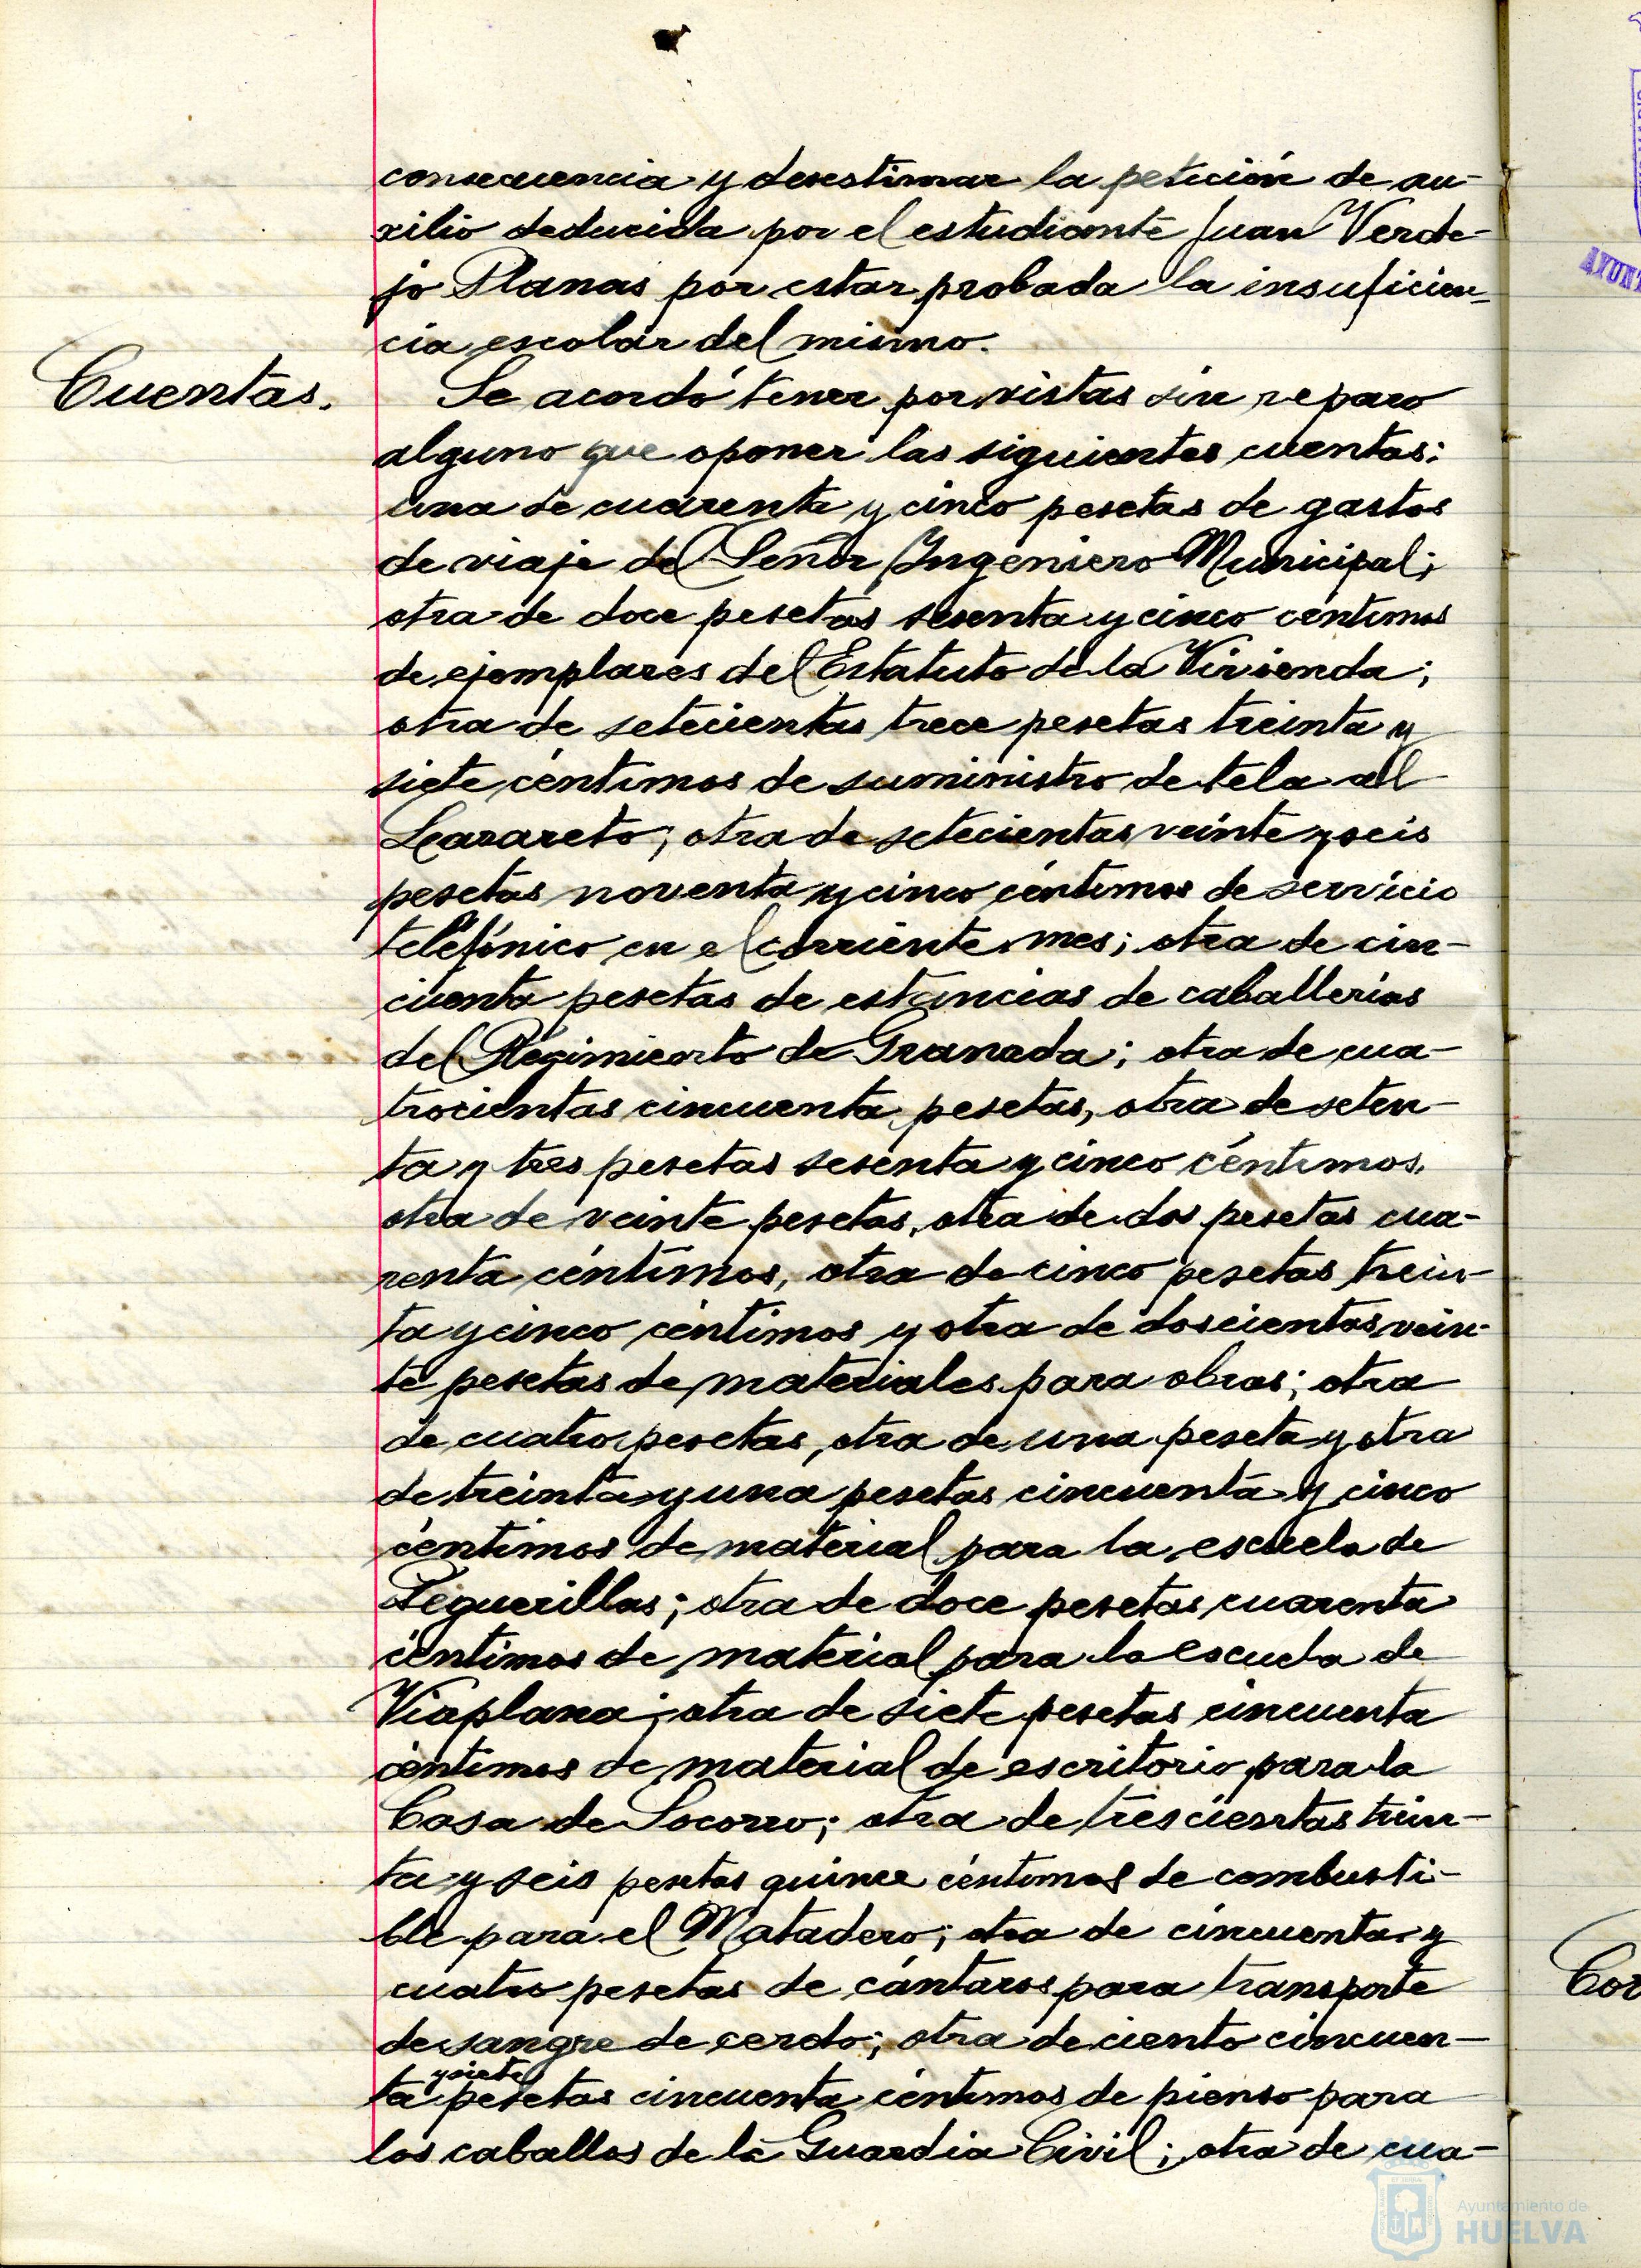 consecuencia y desestimar la petición de au-
xilio deducida por el estudiante Juan Verde-
jo Planas por estar probada la insuficien-
cia escolar del mismo.
Cuentas.
Se acordó tener por vistas sin reparo
alguno que oponer las siguientes cuentas:
una de cuarenta y cinco pesetas de gastos
de viaje del Señor Ingeniero Municipal;
otra de doce pesetas sesenta y cinco céntimos
de ejemplares del Estatuto de la Vivienda;
otra de setecientas trece pesetas treinta y
siete céntimos de suministro de tela al
Lazareto; otra de setecientas veinte y seis
pesetas noventa y cinco céntimos de servicio
telefónico en el corriente mes; otra de cin-
cuenta pesetas de estancias de caballerías
del Regimiento de Granada; otra de cua-
trocientas cincuenta pesetas, otra de seten-
ta y tres pesetas sesenta y cinco céntimos,
otra de veinte pesetas, otra de dos pesetas cua-
renta céntimos, otra de cinco pesetas trein-
ta y cinco céntimos y otra de doscientas vein-
te pesetas de materiales para obras; otra
de cuatro pesetas, otra de una peseta y otra
de treinta y una pesetas cincuenta y cinco
céntimos de material para la escuela de
Peguerillas; otra de doce pesetas cuarenta
céntimos de material para la escuela de
Viaplana; otra de siete pesetas cincuenta
céntimos de material de escritorio para la
Casa de Socorro; otra de trescientas trein-
ta y seis pesetas quince céntimos de combusti-
ble para el Matadero; otra de cincuenta y
cuatro pesetas de cántaros para transporte
de sangre de cerdo; otra de ciento cincuen-
y siete
ta pesetas cincuenta céntimos de pienso para
los caballos de la Guardia Civil; otra de cua-
Ayuntamiento de
HUELVA